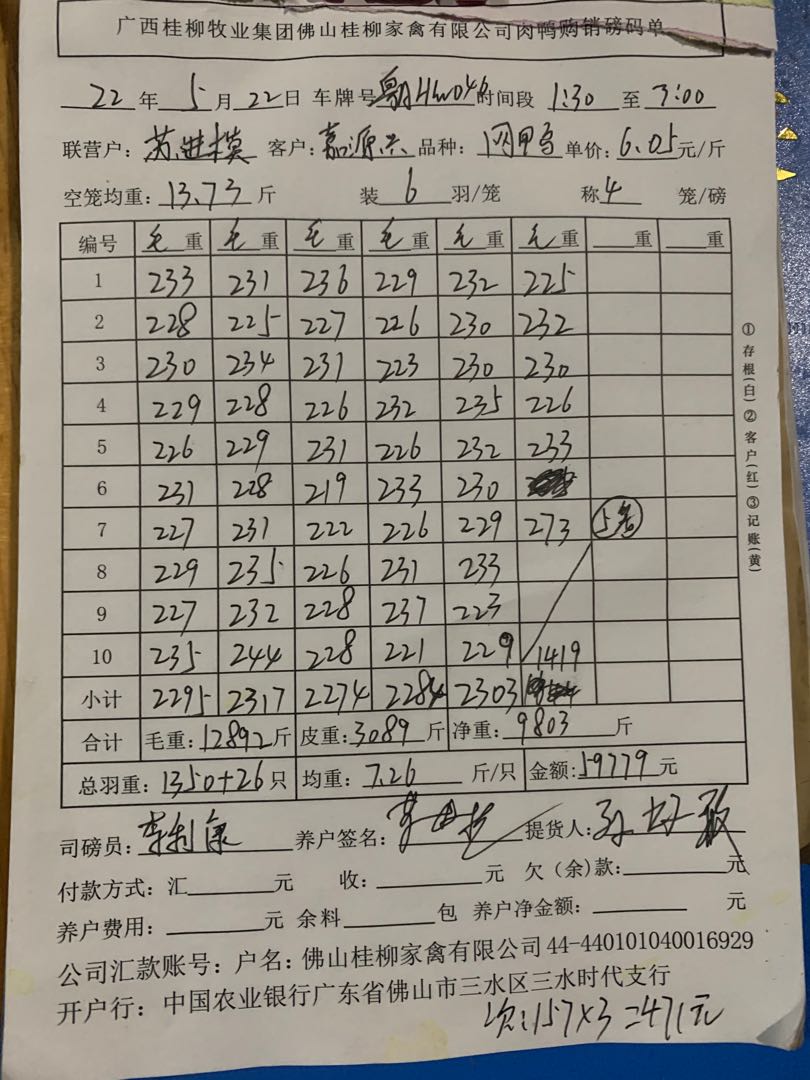 广西桂柳牧业集团佛山桂柳家禽有限公司肉鸭购销磅码单
22年 5月22日 车牌号 时间段 1:30 至 3:00
联营户: 苏进模 客户: 嘉源兴 品种: 单价: 6.05元/斤
空笼均重: 13.73斤 装 6 羽/笼 称 4 笼/磅
编号 毛重 毛重 毛重 毛重 毛重 毛重 重 重
1 233 231 236 229 232 225
2 228 225 227 226 230 232
3 230 234 231 223 230 230
4 229 228 226 232 235 226
5 226 229 231 226 232 233
6 231 228 219 233 230
7 227 231 222 226 229 273
8 229 235 226 231 233
9 227 232 228 237 223
10 235 244 228 221 229 1419
小计 2295 2317 2274 2284 2303
合计 毛重: 12892斤 皮重: 3089斤 净重: 9803 斤
总羽重: 1350+26只 均重: 7.26 斤/只 金额: 59779元
司磅员: 养户签名: 提货人:
付款方式: 汇 元 收: 元 欠(余)款: 元
养户费用: 元 余料 包 养户净金额: 元
公司汇款账号: 户名: 佛山桂柳家禽有限公司 44-440101040016929
开户行: 中国农业银行广东省佛山市三水区三水时代支行
157×3=471元
①存根(白)②客户(红)③记账(黄)